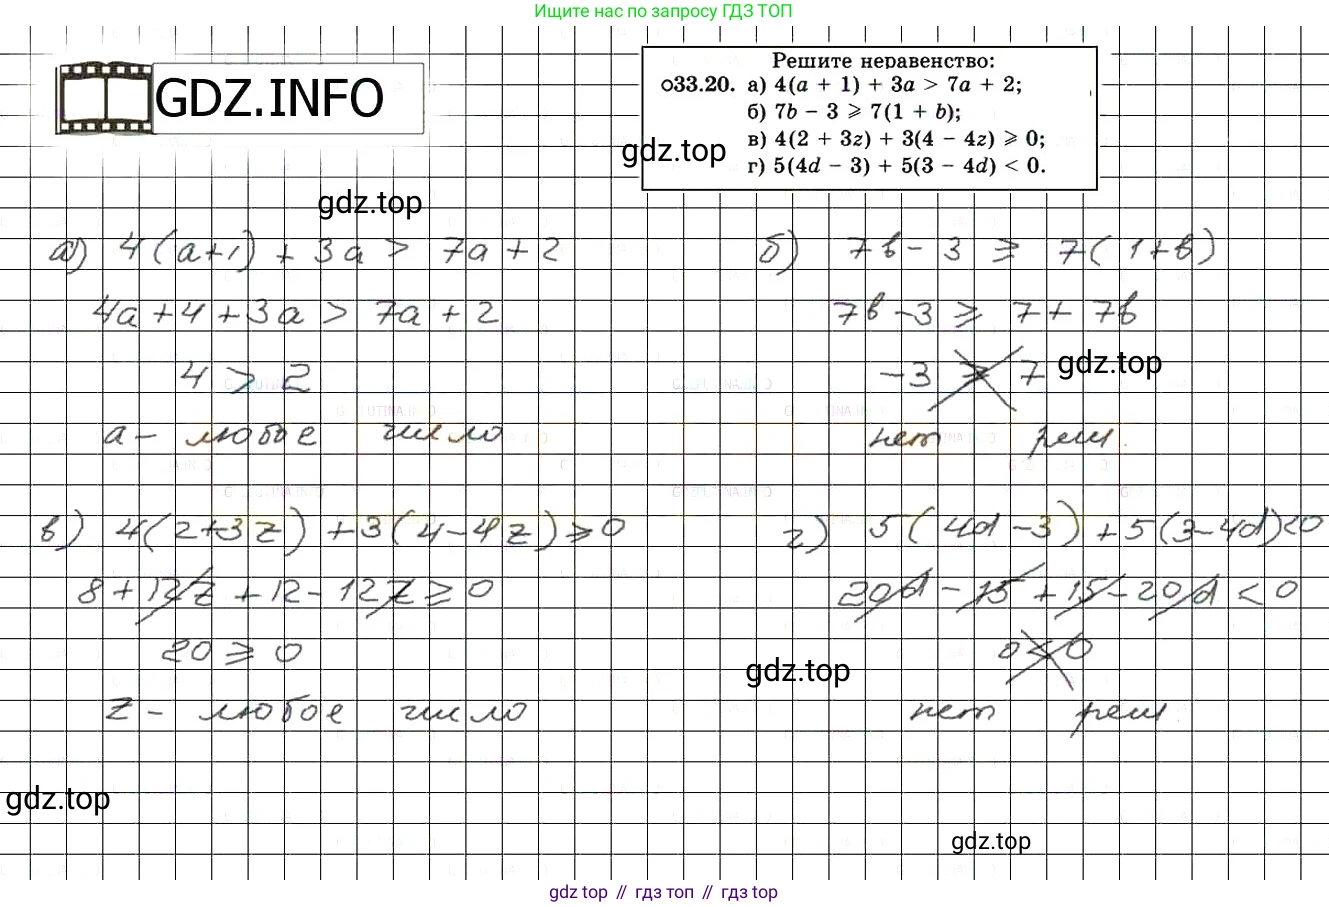 Ищите нас по запросу ГДЗ ТОП
GDZ.INFO
Решите неравенство:
○33.20. а) 4(a + 1) + 3a > 7a + 2;
б) 7b − 3 ⩾ 7(1 + b);
в) 4(2 + 3z) + 3(4 − 4z) ⩾ 0;
г) 5(4d − 3) + 5(3 − 4d) < 0.
gdz.top
gdz.top
а) 4(a+1) + 3a > 7a + 2
4a + 4 + 3a > 7a + 2
4 > 2
a – любое число
б) 7b − 3 ⩾ 7(1+b)
7b − 3 ⩾ 7 + 7b
−3 ⩾ 7
gdz.top
нет реш.
в) 4(2+3z) + 3(4−4z) ⩾ 0
8 + 12z + 12 − 12z ⩾ 0
20 ⩾ 0
z – любое число
г) 5(4d − 3) + 5(3−4d) < 0
20d − 15 + 15 − 20d < 0
0 < 0
gdz.top
нет реш.
gdz.top
gdz.top
gdz top // гдз топ // gdz top